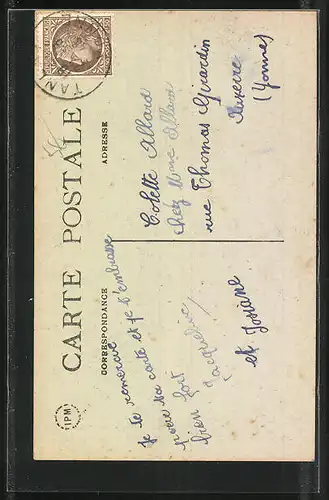 CARTE POSTALE
CORRESPONDANCE
ADRESSE
Je te remercie
pour ta carte et je t'embrasse
bien fort
Jacqueline
et Josiane
Colette Allard
chez Mme Allard
rue Thomas Girardin
Auxerre
(Yonne)
TAN
IPM